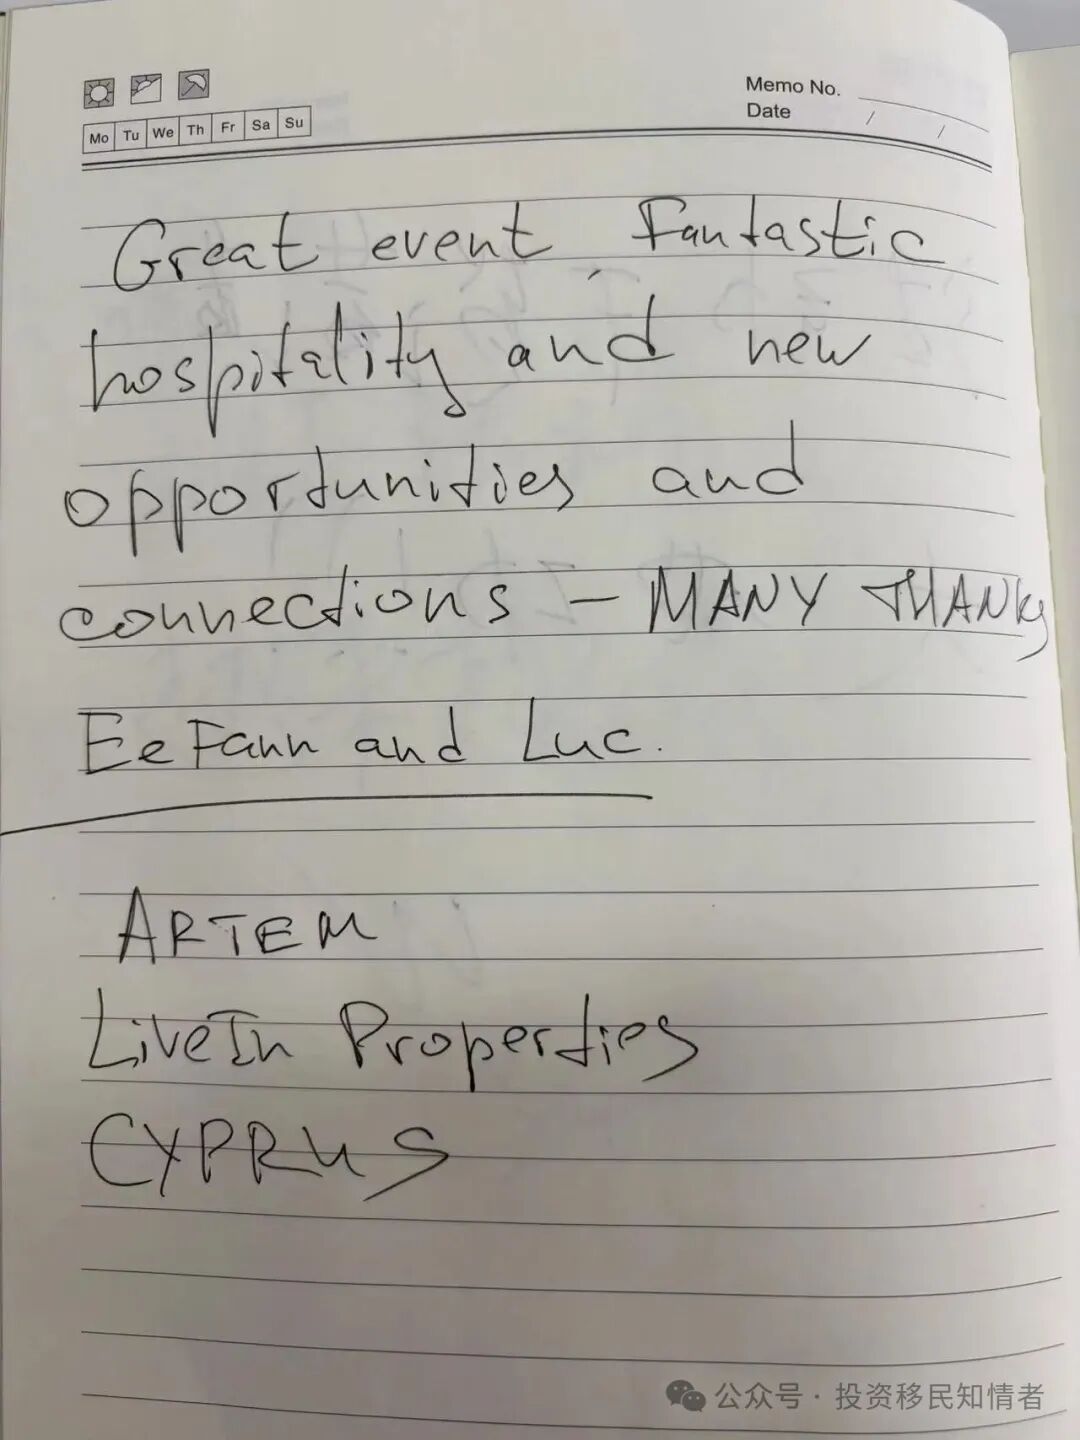 Memo No.
Date / /
Mo Tu We Th Fr Sa Su
Great event Fantastic
hospitality and new
opportunities and
connections – MANY THANKS
EeFann and Luc.
ARTEM
LiveIn Properties
CYPRUS
公众号 · 投资移民知情者